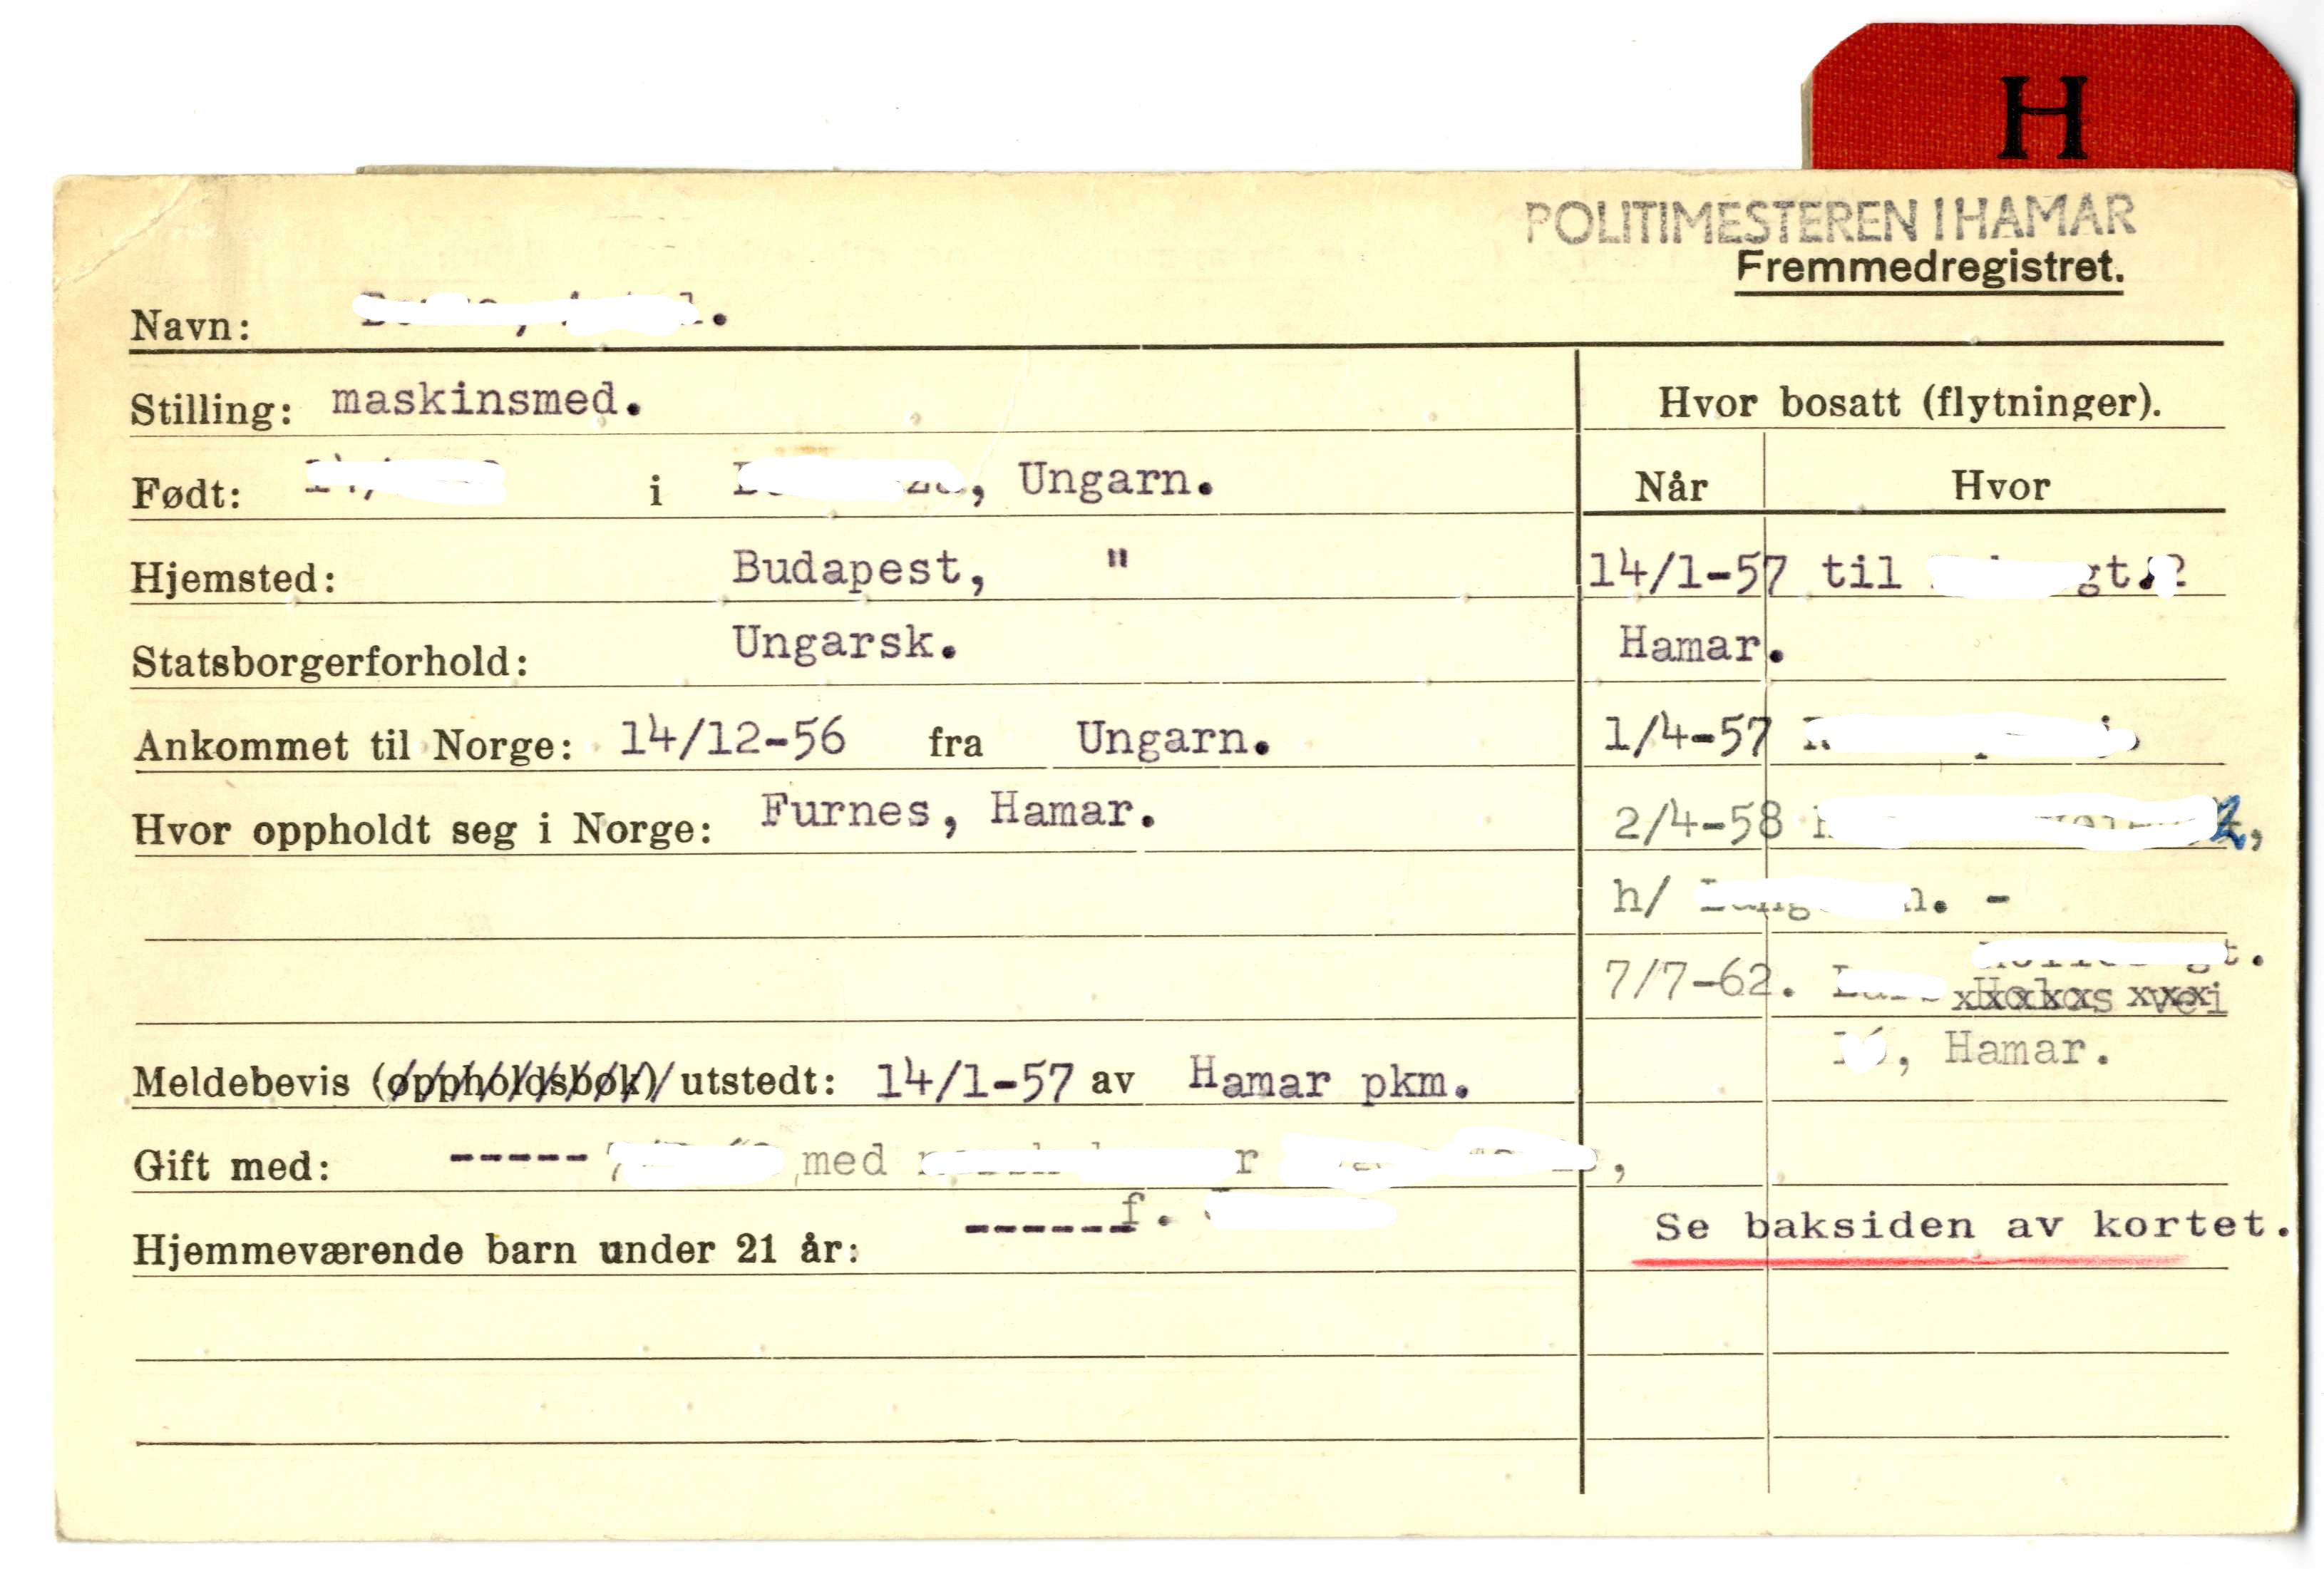 H
POLITIMESTEREN I HAMAR
Fremmedregistret.
Navn:
Stilling: maskinsmed.
Født: i , Ungarn.
Hjemsted: Budapest, "
Statsborgerforhold: Ungarsk.
Ankommet til Norge: 14/12-56 fra Ungarn.
Hvor oppholdt seg i Norge: Furnes, Hamar.
Meldebevis (oppholdsbok) utstedt: 14/1-57 av Hamar pkm.
Gift med: ----- med
------f.
Hjemmeværende barn under 21 år:
Hvor bosatt (flytninger).
Når Hvor
14/1-57 til gt.
Hamar.
1/4-57
2/4-58
h/ -
7/7-62.
, Hamar.
Se baksiden av kortet.